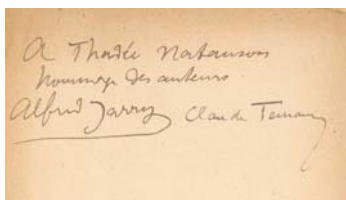 A Thadée Natanson
hommage des auteurs
Alfred Jarry Claude Terrasse